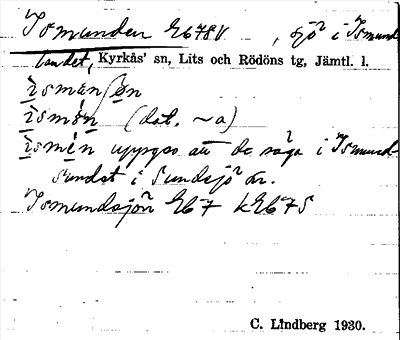 Ismunden Eb78V, sjö i Ismund
landet, Kyrkås' sn, Lits och Rödöns tg, Jämtl. l.
ismen/ən
ismɘn (dat. ~a)
ismén uppges att de säga i Ismund
sundet i Sundsjö sn.
Ismundsjön Eb7 kEb75
C. Lindberg 1930.